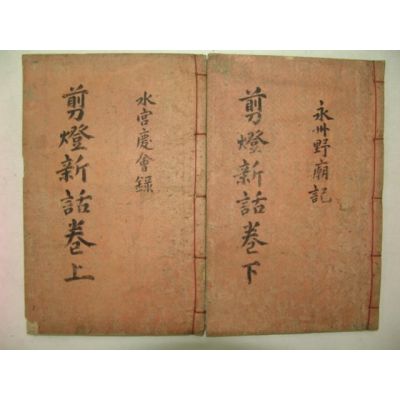 剪燈新話卷上
水宮慶會錄
剪燈新話卷下
永州野廟記